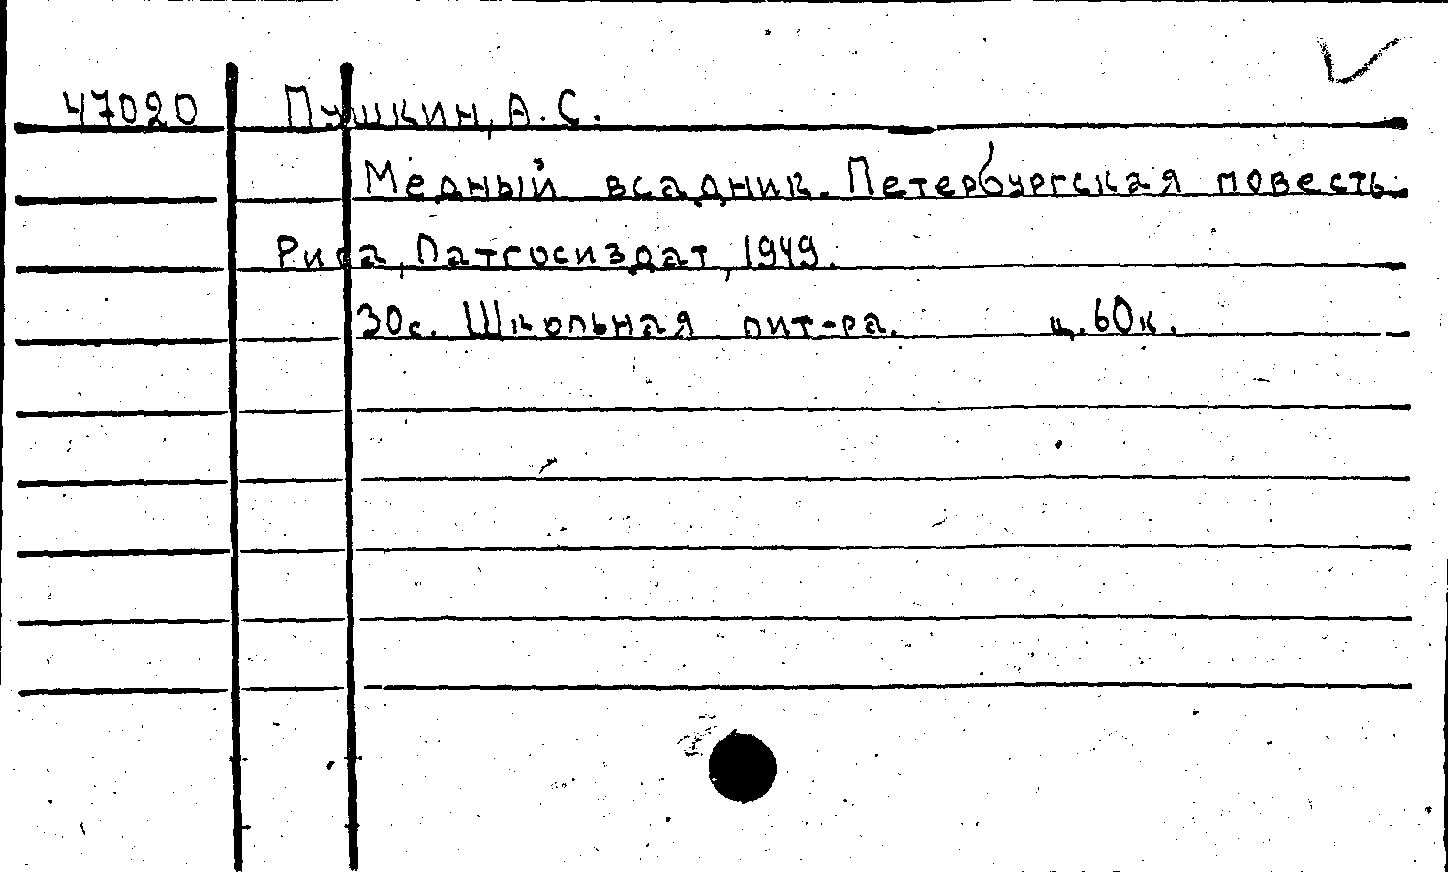 47020 Пушкин, А. С.
Медный всадник. Петербургская повесть.
Рига, Латгосиздат, 1949.
30с. Школьная лит-ра. ц. 60к.